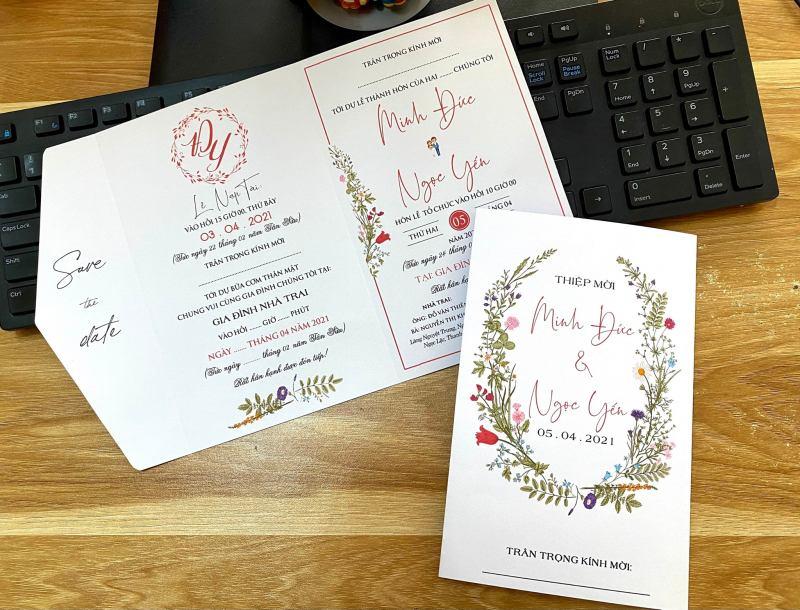 Save
the
date
ĐY
Lễ Nạp Tài:
VÀO HỒI 15 GIỜ 00, THỨ BẢY
03 . 04 . 2021
(Tức ngày 22 tháng 02 năm Tân Sửu)
TRÂN TRỌNG KÍNH MỜI
TỚI DỰ BỮA CƠM THÂN MẬT
CHUNG VUI CÙNG GIA ĐÌNH CHÚNG TÔI TẠI:
GIA ĐÌNH NHÀ TRAI
VÀO HỒI ...... GIỜ ...... PHÚT
NGÀY ...... THÁNG 04 NĂM 2021
(Tức ngày ........ tháng 02 năm Tân Sửu)
Rất hân hạnh được đón tiếp!
TRÂN TRỌNG KÍNH MỜI
TỚI DỰ LỄ THÀNH HÔN CỦA HAI ...... CHÚNG TÔI
Minh Đức
Ngọc Yến
HÔN LỄ TỔ CHỨC VÀO HỒI 10 GIỜ 00
THỨ HAI 05 THÁNG 04
NĂM 202
(Tức ngày 24 tháng 0
TẠI: GIA ĐÌN
Rất hân hạnh
NHÀ TRAI:
ÔNG: ĐỖ VĂN THIỆ
BÀ: NGUYỄN THỊ KH
Làng Nguyệt Trung, N
Ngọc Lặc, Thanh
THIỆP MỜI
Minh Đức
&
Ngọc Yến
05 . 04 . 2021
TRÂN TRỌNG KÍNH MỜI:
Home
PgUp
Scroll Lock
Pause Break
End
PgDn
Num Lock
/
*
-
7 Home
8
9 PgUp
+
4
5
6
1 End
2
3 PgDn
Enter
0 Insert
. Delete
F1
F2
F3
F4
Tab
Caps Lock
Shift
Ctrl